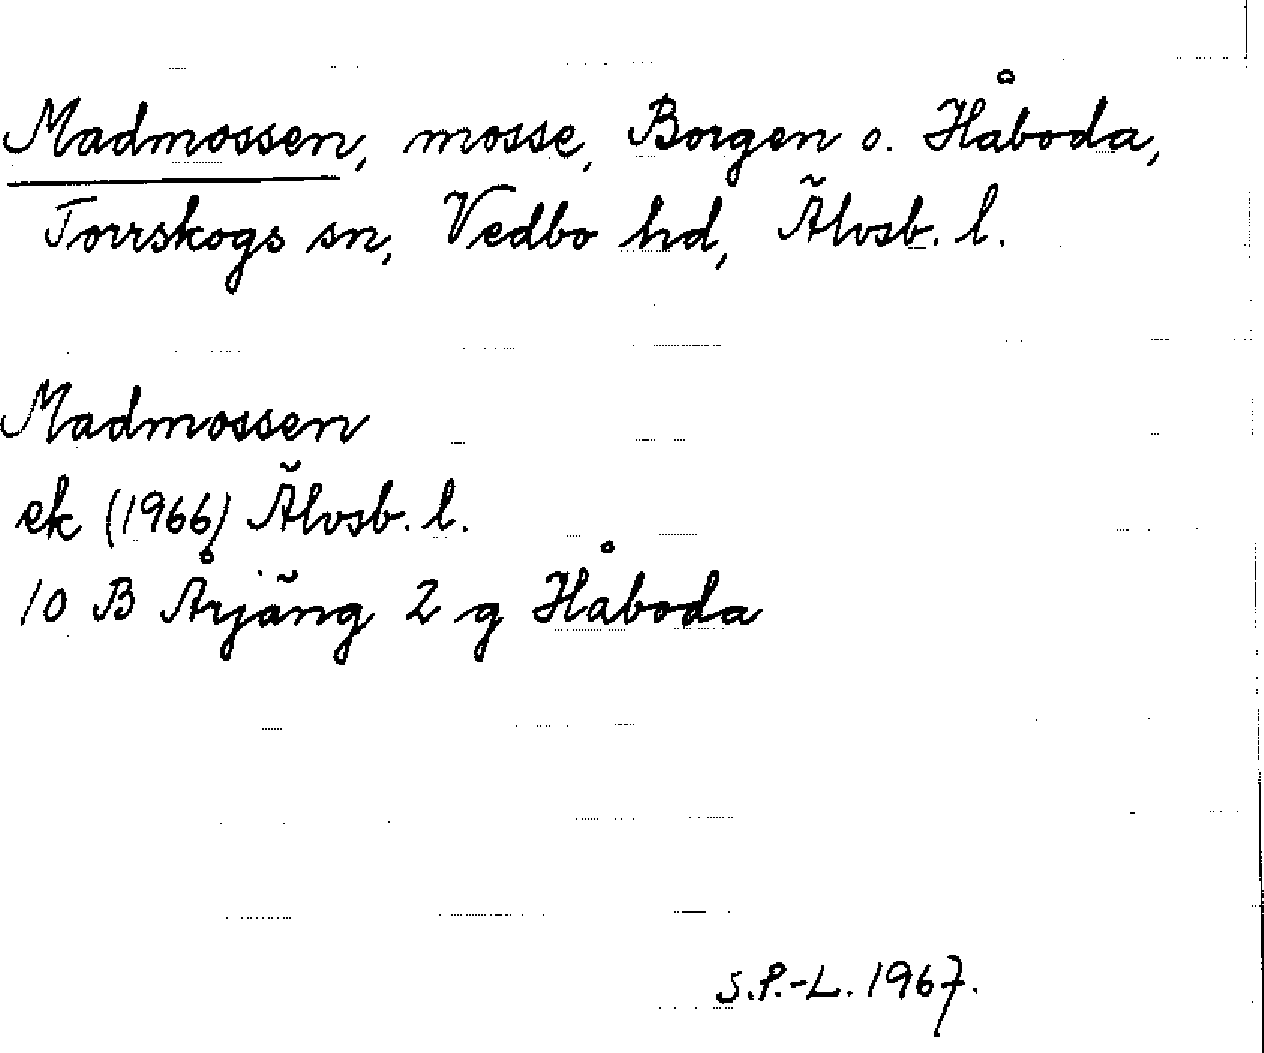 Madmossen, mosse, Borgen o. Håboda,
Torrskogs sn, Vedbo hd, Älvsb. l.
Madmossen
ek (1966) Älvsb. l.
10 B Årjäng 2 g Håboda
S.P.-L. 1967.